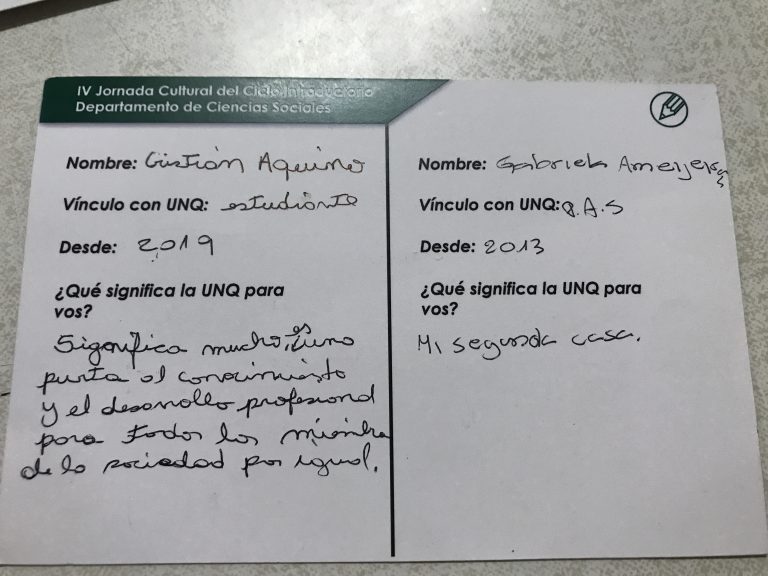 IV Jornada Cultural del Ciclo Introductorio
Departamento de Ciencias Sociales
Nombre: Cristian Aquino
Vínculo con UNQ: estudiante
Desde: 2019
¿Qué significa la UNQ para
vos?
Significa mucho, es una
punta al conocimiento
y el desarrollo profesional
para todos los miembros
de la sociedad por igual.
Nombre: Gabriela
Vínculo con UNQ: P.A.S
Desde: 2013
¿Qué significa la UNQ para
vos?
Mi segunda casa.